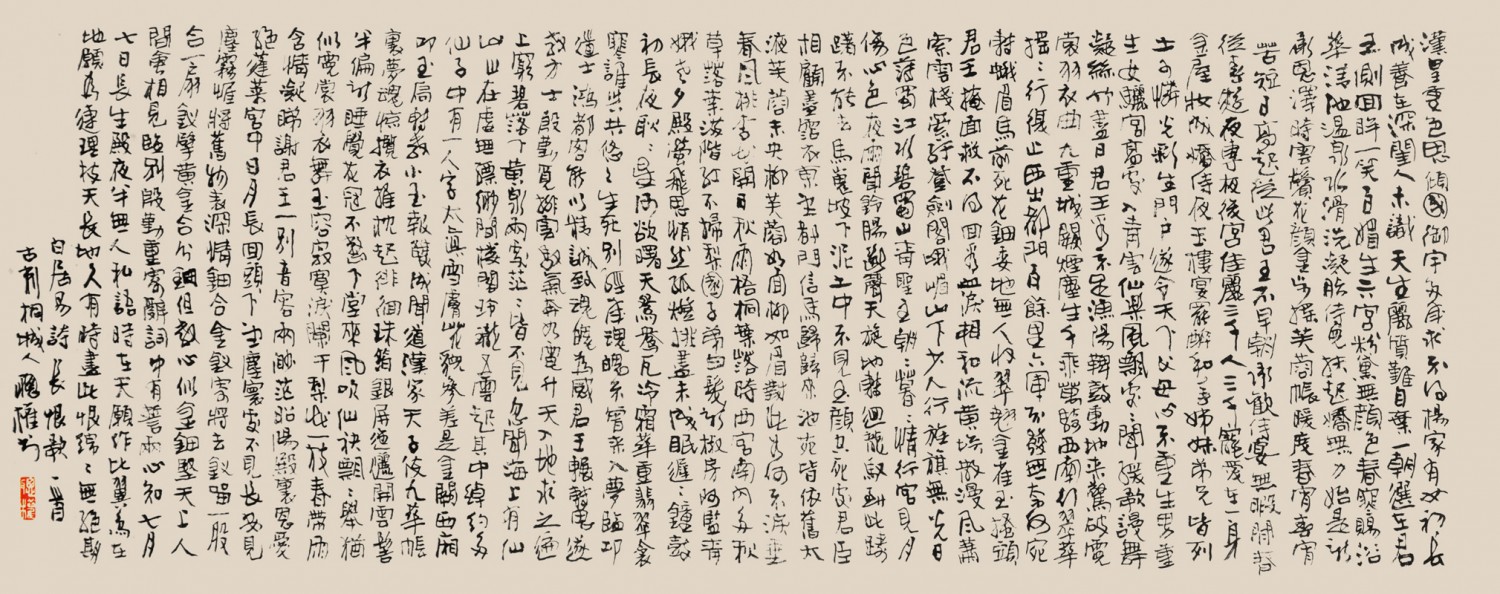 漢皇重色思傾國御宇多年求不得楊家有女初長
成養在深閨人未識天生麗質難自棄一朝選在君
王側回眸一笑百媚生六宮粉黛無顏色春寒賜浴
華清池溫泉水滑洗凝脂侍兒扶起嬌無力始是新
承恩澤時雲鬢花顏金步搖芙蓉帳暖度春宵春宵
苦短日高起從此君王不早朝承歡侍宴無暇閒春
從春遊夜專夜後宮佳麗三千人三千寵愛在一身
金屋妝成嬌侍夜玉樓宴罷醉和春姊妹弟兄皆列
土可憐光彩生門戶遂令天下父母心不重生男重
生女驪宮高處入青雲仙樂風飄處處聞緩歌謾舞
凝絲竹盡日君王看不足漁陽鞞鼓動地來驚破霓
裳羽衣曲九重城闕煙塵生千乘萬騎西南行翠華
搖搖行復止西出都門百餘里六軍不發無奈何宛
轉蛾眉馬前死花鈿委地無人收翠翹金雀玉搔頭
君王掩面救不得回看血淚相和流黃埃散漫風蕭
索雲棧縈紆登劍閣峨嵋山下少人行旌旗無光日
色薄蜀江水碧蜀山青聖主朝朝暮暮情行宮見月
傷心色夜雨聞鈴腸斷聲天旋地轉迴龍馭到此躊
躇不能去馬嵬坡下泥土中不見玉顏空死處君臣
相顧盡霑衣東望都門信馬歸歸來池苑皆依舊太
液芙蓉未央柳芙蓉如面柳如眉對此如何不淚垂
春風桃李花開日秋雨梧桐葉落時西宮南內多秋
草落葉滿階紅不掃梨園子弟白髮新椒房阿監青
娥老夕殿螢飛思悄然孤燈挑盡未成眠遲遲鐘鼓
初長夜耿耿星河欲曙天鴛鴦瓦冷霜華重翡翠衾
寒誰與共悠悠生死別經年魂魄不曾來入夢臨邛
道士鴻都客能以精誠致魂魄為感君王輾轉思遂
教方士殷勤覓排雲馭氣奔如電升天入地求之遍
上窮碧落下黃泉兩處茫茫皆不見忽聞海上有仙
山山在虛無縹緲間樓閣玲瓏五雲起其中綽約多
仙子中有一人字太真雪膚花貌參差是金闕西廂
叩玉扃轉教小玉報雙成聞道漢家天子使九華帳
裏夢魂驚攬衣推枕起徘徊珠箔銀屏迤邐開雲鬢
半偏新睡覺花冠不整下堂來風吹仙袂飄飄舉猶
似霓裳羽衣舞玉容寂寞淚闌干梨花一枝春帶雨
含情凝睇謝君王一別音容兩渺茫昭陽殿裏恩愛
絕蓬萊宮中日月長回頭下望塵寰處不見長安見
塵霧惟將舊物表深情鈿合金釵寄將去釵留一股
合一扇釵擘黃金合分鈿但教心似金鈿堅天上人
間會相見臨別殷勤重寄辭詞中有誓兩心知七月
七日長生殿夜半無人私語時在天願作比翼鳥在
地願為連理枝天長地久有時盡此恨綿綿無絕期
白居易詩長恨歌一首
桐城人